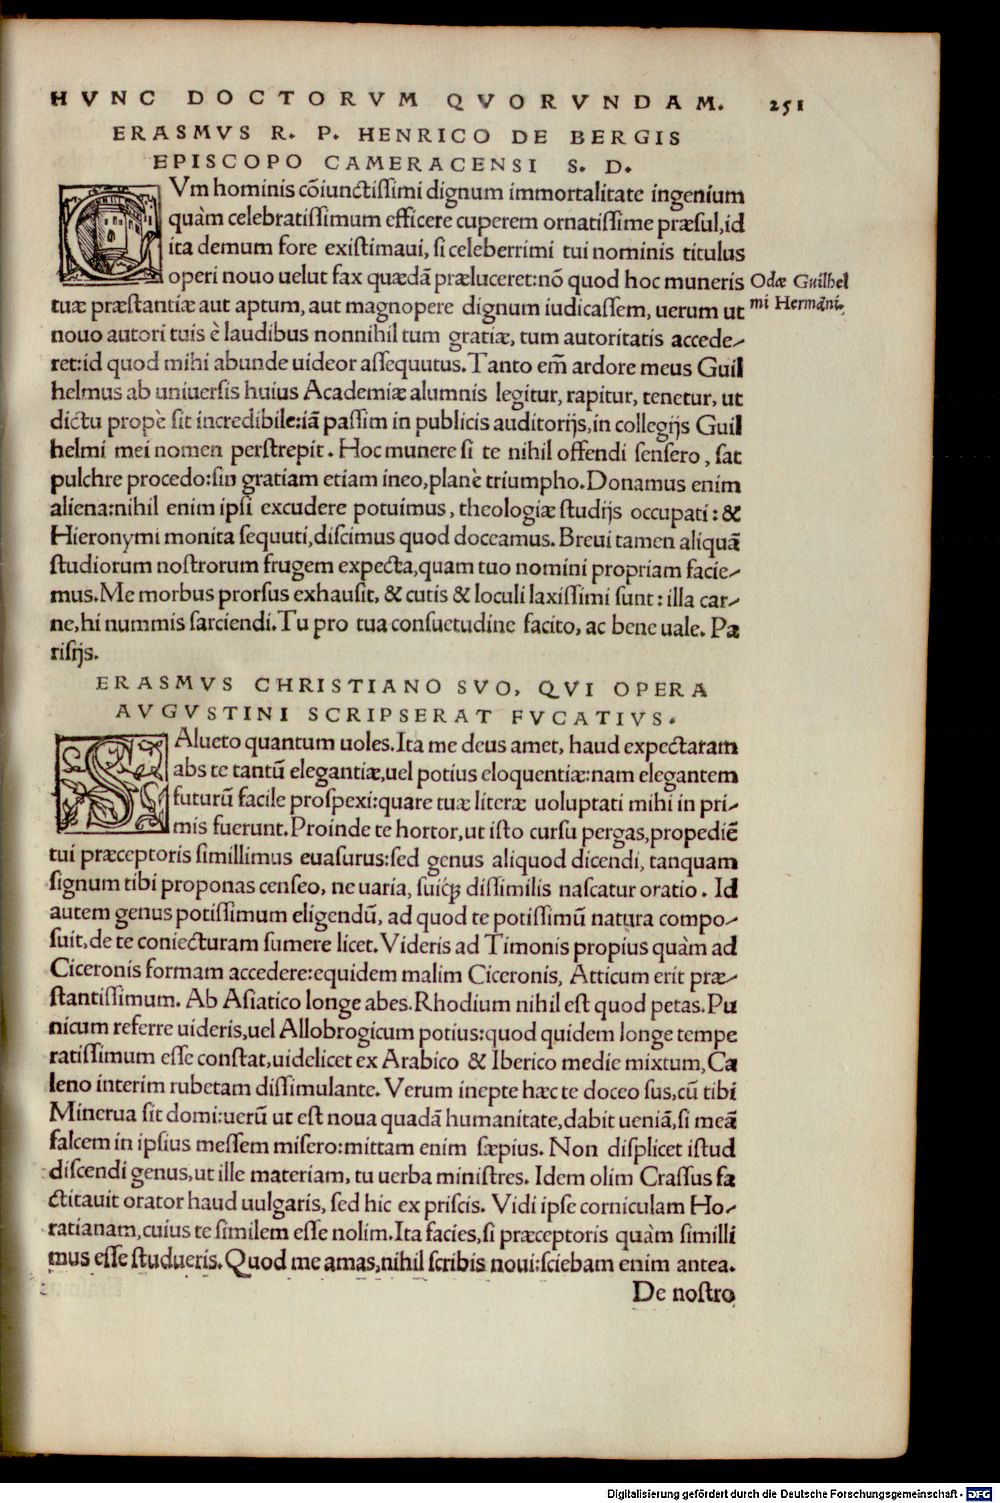 HVNC DOCTORVM QVORVNDAM. 251
ERASMVS R. P. HENRICO DE BERGIS
EPISCOPO CAMERACENSI S. D.
CVm hominis cõiunctiſſimi dignum immortalitate ingenium
quàm celebratiſſimum efficere cuperem ornatiſſime præſul,id
ita demum fore exiſtimaui, ſi celeberrimi tui nominis titulus
operi nouo uelut fax quædã præluceret:nõ quod hoc muneris
Odæ Guilhel
tuæ præſtantiæ aut aptum, aut magnopere dignum iudicaſſem, uerum ut
mi Hermãni.
nouo autori tuis è laudibus nonnihil tum gratiæ, tum autoritatis accede-
ret:id quod mihi abunde uideor aſſequutus. Tanto em̃ ardore meus Guil
helmus ab uniuerſis huius Academiæ alumnis legitur, rapitur, tenetur, ut
dictu propè ſit incredibile:iã paſſim in publicis auditorijs,in collegijs Guil
helmi mei nomen perſtrepit. Hoc munere ſi te nihil offendi ſenſero, ſat
pulchre procedo:ſin gratiam etiam ineo,planè triumpho.Donamus enim
aliena:nihil enim ipſi excudere potuimus, theologiæ ſtudijs occupati: &
Hieronymi monita ſequuti,diſcimus quod doceamus. Breui tamen aliquã
ſtudiorum noſtrorum frugem expecta,quam tuo nomini propriam facie-
mus.Me morbus prorſus exhauſit, & cutis & loculi laxiſſimi ſunt: illa car-
ne,hi nummis ſarciendi.Tu pro tua conſuetudine facito, ac bene uale. Pa
riſijs.
ERASMVS CHRISTIANO SVO, QVI OPERA
AVGVSTINI SCRIPSERAT FVCATIVS.
SAlueto quantum uoles.Ita me deus amet, haud expectaram
abs te tantũ elegantiæ,uel potius eloquentiæ:nam elegantem
futurũ facile proſpexi:quare tuæ literæ uoluptati mihi in pri-
mis fuerunt.Proinde te hortor,ut iſto curſu pergas,propediẽ
tui præceptoris ſimillimus euaſurus:ſed genus aliquod dicendi, tanquam
ſignum tibi proponas cenſeo, ne uaria, ſuiqꝫ diſſimilis naſcatur oratio. Id
autem genus potiſſimum eligendũ, ad quod te potiſſimũ natura compo-
ſuit,de te coniecturam ſumere licet.Videris ad Timonis propius quàm ad
Ciceronis formam accedere:equidem malim Ciceronis, Atticum erit præ-
ſtantiſſimum. Ab Aſiatico longe abes.Rhodium nihil eſt quod petas.Pu
nicum referre uideris,uel Allobrogicum potius:quod quidem longe tempe
ratiſſimum eſſe conſtat,uidelicet ex Arabico & Iberico medie mixtum,Ca
leno interim rubetam diſſimulante. Verum inepte hæc te doceo ſus,cũ tibi
Minerua ſit domi:uerũ ut eſt noua quadã humanitate,dabit ueniã,ſi meã
falcem in ipſius meſſem miſero:mittam enim ſæpius. Non diſplicet iſtud
diſcendi genus,ut ille materiam, tu uerba miniſtres. Idem olim Craſſus fa
ctitauit orator haud uulgaris, ſed hic ex priſcis. Vidi ipſe corniculam Ho-
ratianam,cuius te ſimilem eſſe nolim.Ita facies,ſi præceptoris quàm ſimilli
mus eſſe ſtudueris.Quod me amas,nihil ſcribis noui:ſciebam enim antea.
De noſtro
Digitalisierung gefördert durch die Deutsche Forschungsgemeinschaft - DFG